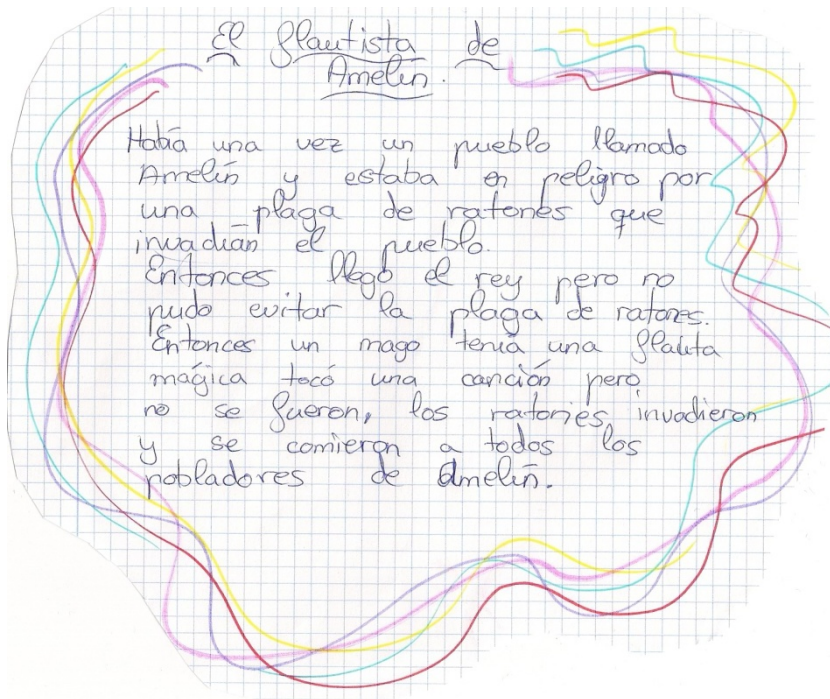 El flautista de
Amelín.
Había una vez un pueblo llamado
Amelín y estaba en peligro por
una plaga de ratones que
invadían el pueblo.
Entonces llegó el rey pero no
pudo evitar la plaga de ratones.
Entonces un mago tenía una flauta
mágica tocó una canción pero
no se fueron, los ratones invadieron
y se comieron a todos los
pobladores de Amelín.